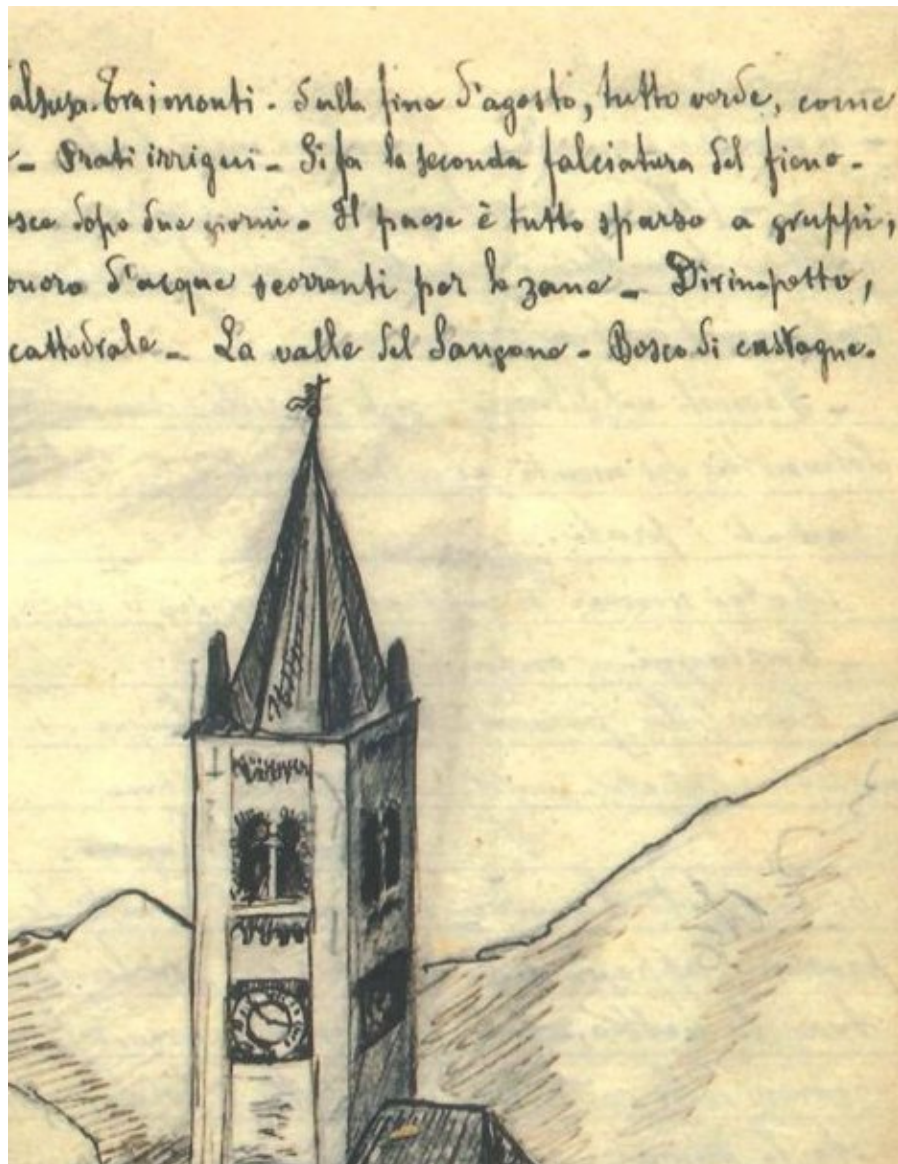 alsusa. Traimonti. Sulla fine d'agosto, tutto verde, come
- Prati irrigui - Si fa la seconda falciatura del fieno -
sce dopo due giorni. Il paese è tutto sparso a gruppi,
onoro d'acque scorrenti per le zane - Dirimpetto,
cattedrale - La valle del Sangone - Bosco di castagne.